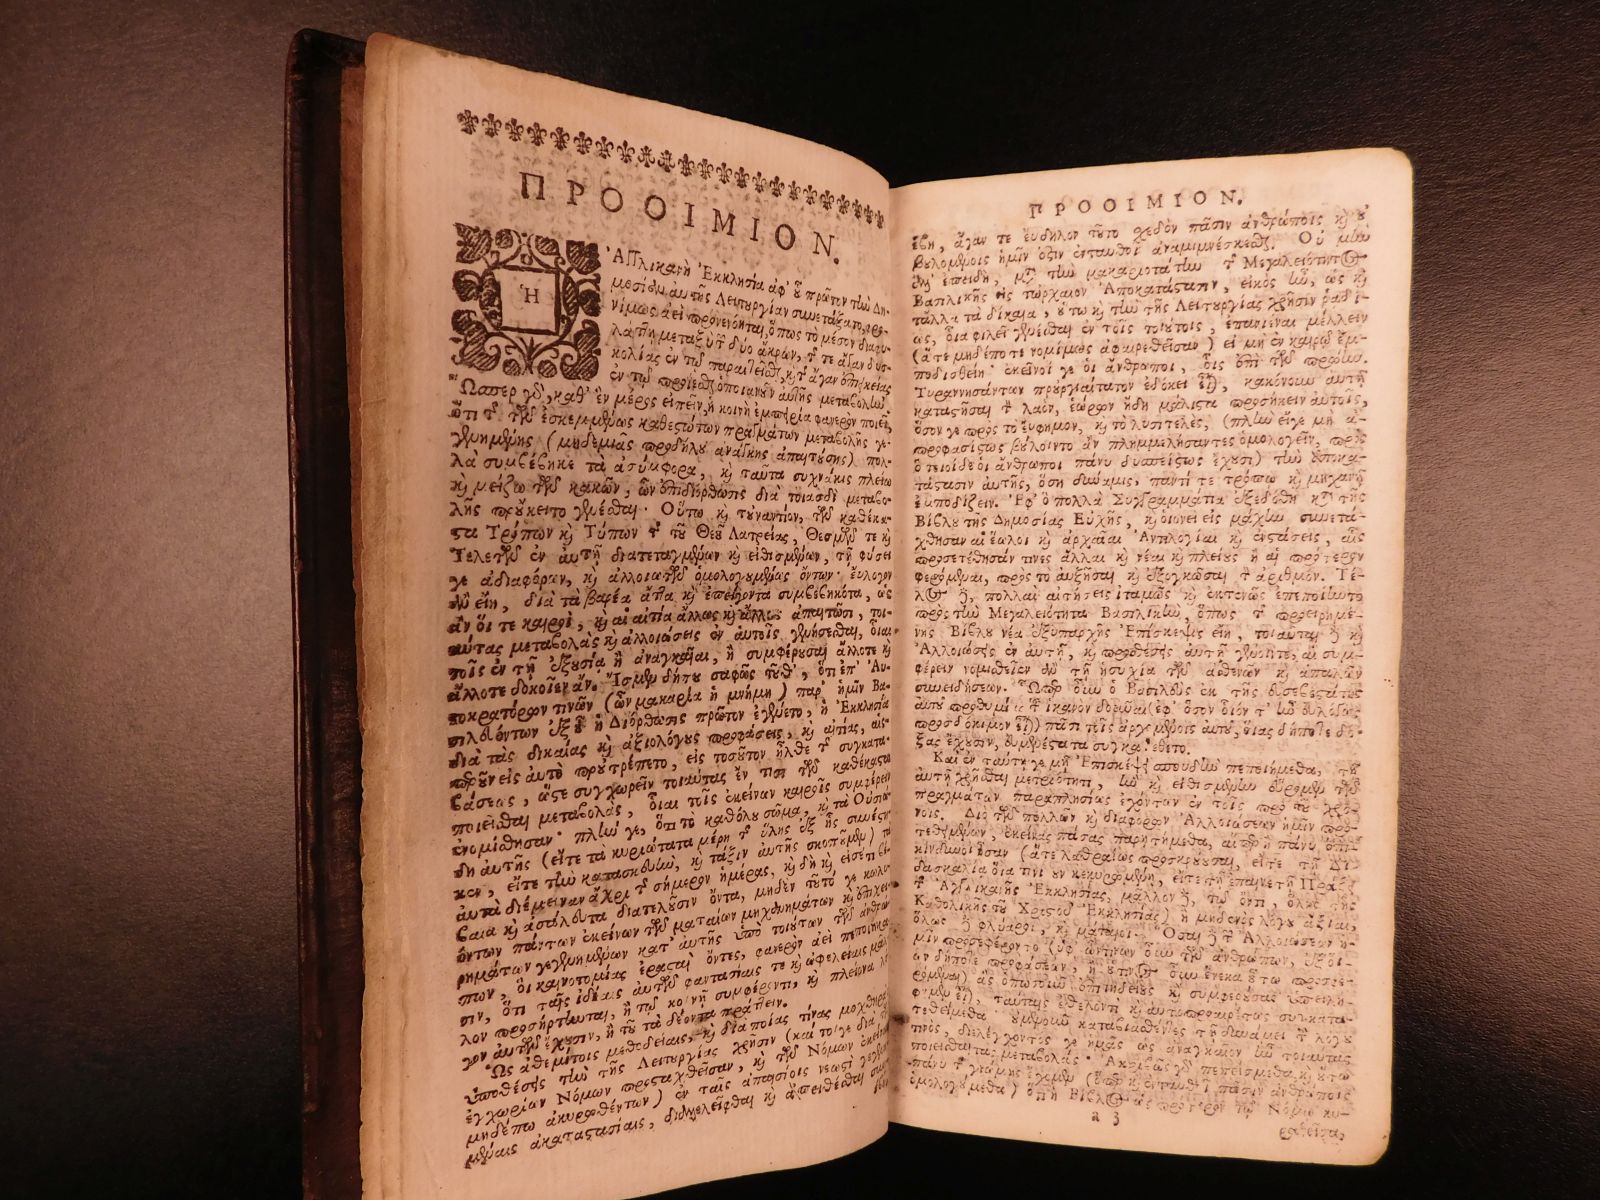 ΠΡΟΟΙΜΙΟΝ.
Ἡ ἈΓΓλικανὴ Ἐκκλησία ἀφ' οὗ πρῶτον τὴν Δη-
μοσίαν αὑτῆς Λειτουργίαν συνετάξατο,
νίμως ἀεὶ προνενόηται, ὅπως τὸ μέσον διαφυ-
λάττῃ μεταξὺ τῶν δύο ἄκρων, τῆς τε ἄγαν δυσ-
κολίας ἐν τῷ παραιτεῖσθαι, καὶ τῆς ἄγαν ἐπιεικείας
ἐν τῷ προσίεσθαι ὁποιανοῦν αὑτῆς μεταβολήν.
Ὥσπερ γὰρ, καθ' ἓν μέρος εἰπεῖν, ἡ κοινὴ ἐμπειρία φανερὸν ποιεῖ,
ὅτι τῆς τῶν ἐσκεμμένως καθεστώτων πραγμάτων μεταβολῆς γε-
γενημένης (μηδεμιᾶς προδήλου ἀνάγκης ἀπαιτούσης) πολ-
λὰ συμβέβηκε τὰ ἀσύμφορα, καὶ ταῦτα συχνάκις πλείω
καὶ μείζω τῶν κακῶν, ὧν ἐπιδιόρθωσις διὰ τοιᾶσδε μεταβο-
λῆς προὔκειτο γενέσθαι· Οὕτω καὶ τοὐναντίον, τῶν καθέκα-
στα Τρόπων καὶ Τύπων τῆς τοῦ Θεοῦ Λατρείας, Θεσμῶν τε καὶ
Τελετῶν ἐν αὐτῇ διατεταγμένων καὶ εἰθισμένων, τῇ φύσει
γε ἀδιαφόρων, καὶ ἀλλοιωτῶν ὁμολογουμένως ὄντων· εὔλογον
ἂν εἴη, διὰ τὰ βαρέα ἄττα καὶ ἐπείγοντα συμβεβηκότα, ὡς
ἂν οἵ τε καιροὶ, καὶ αἱ αἰτίαι ἄλλως καὶ ἄλλως ἀπαιτῶσι, τοι-
αύτας μεταβολὰς καὶ ἀλλοιώσεις ἐν αὐτοῖς γενήσεσθαι, οἷαι
τοῖς ἐν τῇ ἐξουσίᾳ ἢ ἀναγκαῖαι, ἢ συμφέρουσαι ἄλλοτε καὶ
ἄλλοτε δοκοῖεν ἄν. Ἴσμεν δήπου σαφῶς τοῦθ', ὅτι ἐπ' Αὐ-
τοκρατόρων τινῶν (ὧν μακαρία ἡ μνήμη) παρ' ἡμῖν Βα-
σιλευόντων ἐξ οὗ ἡ Διόρθωσις πρῶτον ἐγένετο, ἡ Ἐκκλησία
διὰ τὰς δικαίας καὶ ἀξιολόγους προφάσεις, καὶ αἰτίας, αἷς
εἰς αὐτὸ προὐτρέπετο, εἰς τοσοῦτον ἦλθε τῆς συγκατα-
βάσεως, ὥστε συγχωρεῖν τοιαύτας ἔν τισι τῶν καθέκαστα
ποιεῖσθαι μεταβολὰς, οἷαι τοῖς ἐκείνων καιροῖς συμφέρειν
ἐνομίσθησαν· πλήν γε, ὅτι τὸ καθόλου σῶμα, καὶ τὰ Οὐσιώ-
δη αὐτῆς (εἴτε τὰ κυριώτατα μέρη τῆς ὕλης ἐξ ἧς συνέστη-
κεν, εἴτε τὴν κατασκευὴν, καὶ τάξιν αὐτῆς σκοποῦμεν) τὰ
αὐτὰ διέμειναν ἄχρι τῆς σήμερον ἡμέρας, καὶ δὴ καὶ εἰσέτι βέ-
βαια καὶ ἀσάλευτα διατελοῦσιν ὄντα, μηδὲν τοῦτό γε κωλυ-
όντων πάντων ἐκείνων τῶν ματαίων μηχανημάτων καὶ ἐπιχει-
ρημάτων γεγενημένων κατ' αὐτῆς ὑπὸ τοιούτων τῶν ἀνθρώ-
πων, οἳ καινοτομίας ἐρασταὶ ὄντες, φανερὸν ἀεὶ πεποιήκα-
σιν, ὅτι ταῖς ἰδίαις αὐτῶν φαντασίαις τε καὶ ὠφελείαις μᾶλ-
λον προσήρτηνται, ἢ τῷ κοινῇ συμφέροντι, καὶ πλείονα λό-
γον αὐτῶν ἔχουσιν, ἢ τοῦ τὰ δέοντα πράττειν.
Ὡς ἀθεμίτοις μεθοδείαις, καὶ διὰ ποίας τινὰς μοχθηρὰς
ὑποθέσεις τὴν τῆς Λειτουργίας χρῆσιν (καίτοιγε διὰ τῶν
ἐγχωρίων Νόμων προσταχθεῖσαν, καὶ τῶν Νόμων ἐκείνων
μηδέπω ἀκυρωθέντων) ἐν ταῖς ἀπαισίοις νεωστὶ γεγενη-
μέναις ἀκαταστασίαις, διαμελεῖσθαι καὶ ἀπειθεῖσθαι συνέ-
ΠΡΟΟΙΜΙΟΝ.
έβη, ἄγαν τε εὔδηλον τοῦτο σχεδὸν πᾶσιν ἀνθρώποις καὶ οὐ
βουλομένοις ἡμῖν ἐστιν ἐνταυθοῖ ἀναμιμνέσκεσθαι. Οὐ μὴν
ἀλλ' ἐπειδὴ, μετὰ τὴν μακαριοτάτην τῆς Μεγαλειότητος
Βασιλικῆς εἰς τὠρχαῖον Ἀποκατάστασιν, εἰκὸς ἦν, ὡς καὶ
τἄλλα τὰ δίκαια, οὕτω καὶ τὴν τῆς Λειτουργίας χρῆσιν ῥαδί-
ως, οἷα φιλεῖ γενέσθαι ἐν τοῖς τοιούτοις, ἐπανιέναι μέλλειν
(ἅτε μηδέποτε νομίμως ἀφαιρεθεῖσαν) εἰ μὴ ἐν καιρῷ ἐμ-
ποδισθείη· ἐκεῖνοί γε οἱ ἄνθρωποι, οἷς ἐπὶ τῶν προϋπ.
Τυραννησάντων προὐργιαίτατον ἐδόκει εἶναι, κακόνουν αὐτῇ
καταστῆσαι τὸν λαὸν, ἑώρων ἤδη μάλιστα προσήκειν αὐτοῖς,
ὅσον γε πρὸς τὸ εὔφημον, καὶ τὸ λυσιτελὲς, (πλὴν εἴγε μὴ ἀ-
προφασίστως βούλοιντο ἂν πλημμελήσαντες ὁμολογεῖν, πρὸς
ὃ τοιοίδε οἱ ἄνθρωποι πάνυ δυσπείστως ἔχουσι) τὴν ἀποκα-
τάστασιν αὐτῆς, ὅση δύναμις, παντί τε τρόπῳ καὶ μηχανῇ
ἐμποδίζειν. Ἐφ' ὃ πολλὰ Συγγραμμάτια ἐξεδόθη κατὰ τῆς
Βίβλου τῆς Δημοσίας Εὐχῆς, καὶ οἱονεὶ εἰς μάχην συνετά-
χθησαν αἱ ἕωλοι καὶ ἀρχαῖαι Ἀντιλογίαι καὶ ἐνστάσεις, αἷς
προσετέθησάν τινες ἄλλαι καὶ νέαι καὶ πλείους ἢ αἱ πρότερον
φερόμεναι, πρὸς τὸ αὐξῆσαι καὶ ἐξογκῶσαι τὸν ἀριθμόν. Τέ-
λος δὲ, πολλαὶ αἰτήσεις ἰταμῶς καὶ ἐκτενῶς ἐπεποίηντο
πρὸς τὴν Μεγαλειότητα Βασιλικὴν, ὅπως τῆς προειρημέ-
νης Βίβλου νέα ἐξυπαρχῆς Ἐπίσκεψις εἴη, τοιαῦται δὲ καὶ
Ἀλλοιώσεις ἐν αὐτῇ, καὶ προσθέσεις αὐτῇ γένοιντο, αἳ συμ-
φέρειν νομισθεῖεν ἂν τῇ ἡσυχίᾳ τῶν ἀσθενῶν καὶ ἁπαλῶν
συνειδήσεων. Ὧιπερ οὖν ὁ Βασιλεὺς ἐκ τῆς εὐσεβεστάτης
αὑτοῦ προθυμίας τοῦ ἱκανὸν δοῦναι (ἐφ' ὅσον οἷόν τ' ἦν εὐλόγως
προσδόκιμον εἶναι) πᾶσι τοῖς ἀρχομένοις αὐτοῦ, οἵας δήποτε δό-
ξας ἔχουσιν, εὐμενέστατα συγκατέθετο.
Καὶ ἐν ταύτῃ γε μὲν Ἐπισκέψει σπουδὴν πεποιήμεθα, τῇ
αὐτῇ χρῆσθαι μετριότητι, ᾗ καὶ εἰθισμένων εὕρομεν τῶν
πραγμάτων παραπλησίως ἐχόντων ἐν τοῖς πρὸ τοῦ χρό-
νοις. Διὸ τῶν πολλῶν καὶ διαφόρων Ἀλλοιώσεων ἡμῖν προ-
τεθειμένων, ἐκείνας πάσας παρῃτήμεθα, αἵπερ ἢ πάνυ ἐπι-
κίνδυνοι ἦσαν (ἅτε λαθραίως προσκρούουσαι, εἴτε τῇ Δι-
δασκαλίᾳ οἵᾳ τινι οὖν κεκυρωμένῃ, εἴτε τῇ ἐπαινετῇ Πράξει
τῆς Ἀγγλικανῆς Ἐκκλησίας, μᾶλλον δὲ, τῷ ὄντι, ὅλης τῆς
Καθολικῆς τοῦ Χριστοῦ Ἐκκλησίας) ἢ μηδενὸς λόγου ἄξιαι,
ὅλως δὲ φλύαροι, καὶ μάταιοι. Ὅσαι δὲ τῶν Ἀλλοιώσεων ἡ-
μῖν προσεφέροντο (ὑφ' ὧντινων οὖν τῶν ἀνθρώπων, ἐξ οἵ-
ων δήποτε προφάσεων, ἢ οὗτινος οὖν ἕνεκα οὕτω προσφε-
ρόμεναι) ἃς ὁπωσοῦν ἐπιτηδείους καὶ συμφερούσας ὑπειλή-
φαμεν εἶναι, ταύταις ἐθελοντὶ καὶ αὐτοπροαιρέτως συγκατα-
τεθείμεθα· οὐ μὲν οὖν καταβιασθέντες τῇ δυνάμει τοῦ λόγου
τινὸς, διελέγχοντός γε ἡμᾶς ὡς ἀναγκαῖον ἦν τοιαύτας
ποιεῖσθαι τὰς μεταβολάς· Ἀκριβῶς γὰρ πεπείσμεθα καὶ οὕτω
πάνυ τῆς γνώμης ἔχομεν (ὅπερ καὶ ἐνταῦθα πᾶσιν ἀνθρώποις
ὁμολογοῦμεν) ὅτι ἡ Βίβλος ὡς πρότερον τῷ Νόμῳ κυ-
a 3
ρωθεῖσα,